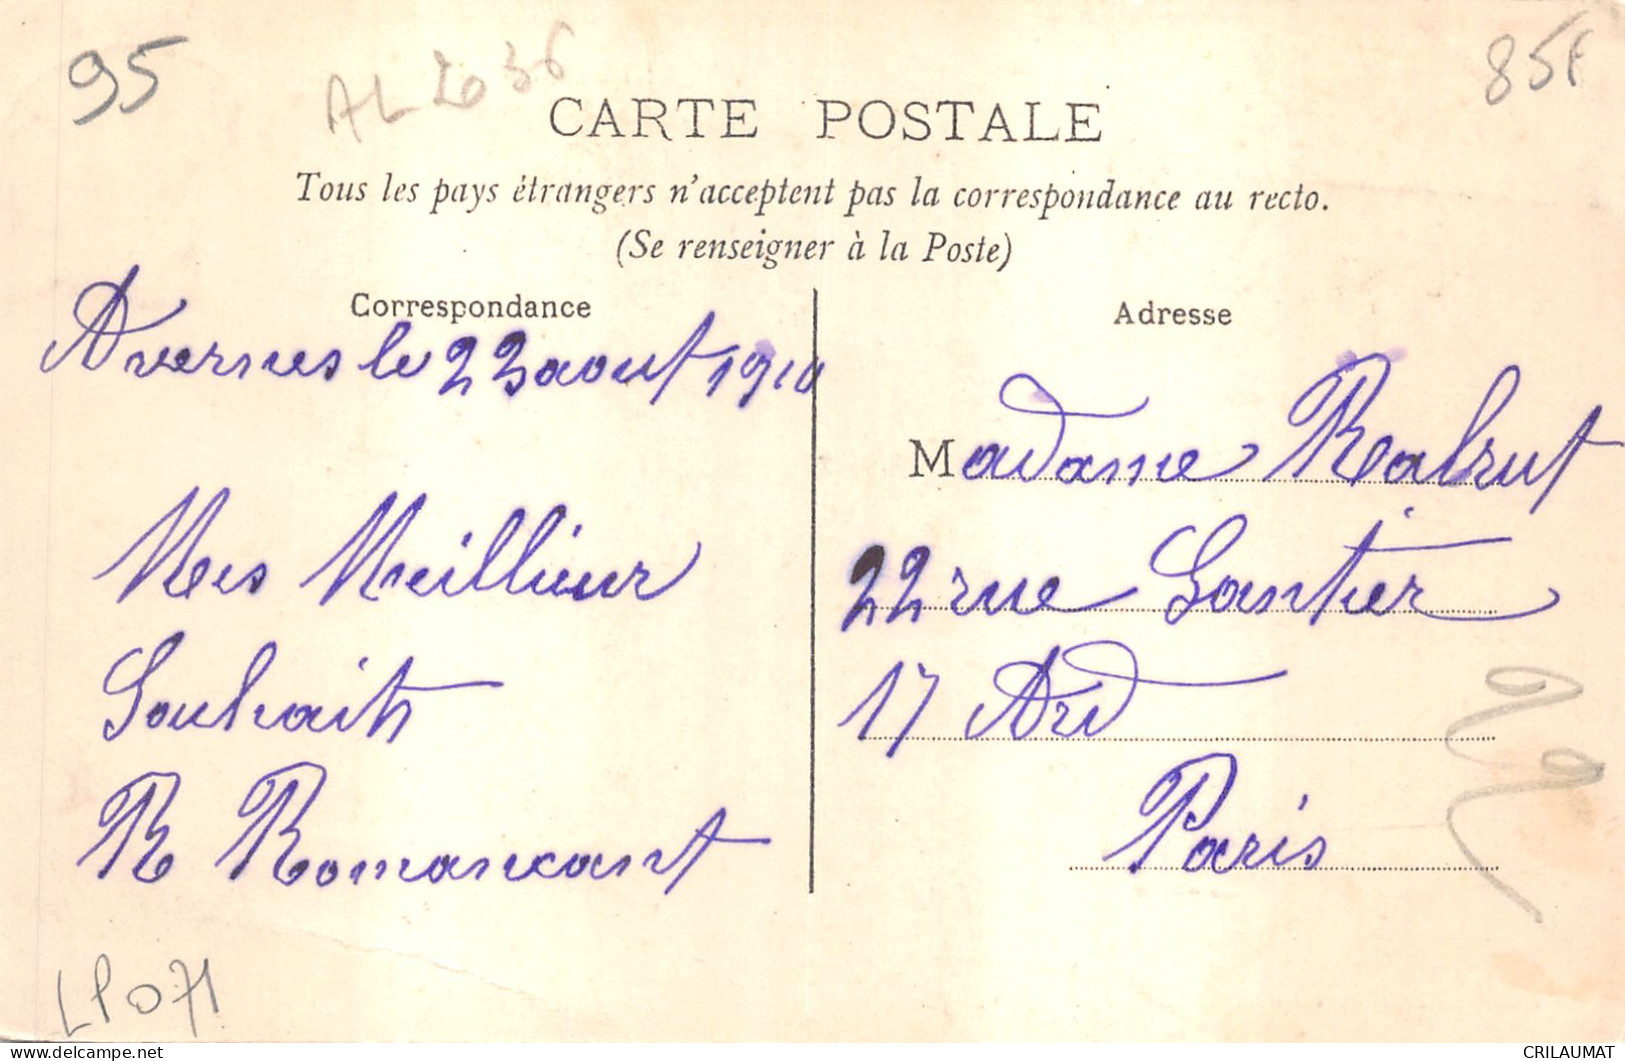 95
AL 2036
85F
CARTE POSTALE
Tous les pays étrangers n'acceptent pas la correspondance au recto.
(Se renseigner à la Poste)
Correspondance
Avernes le 23 aout 1910
Mes Meillieur
Souhaits
R Romancant
Adresse
Madame Rabrut
22 rue Gantier
17 Ard
Paris
LP071
delcampe.net
CRILAUMAT